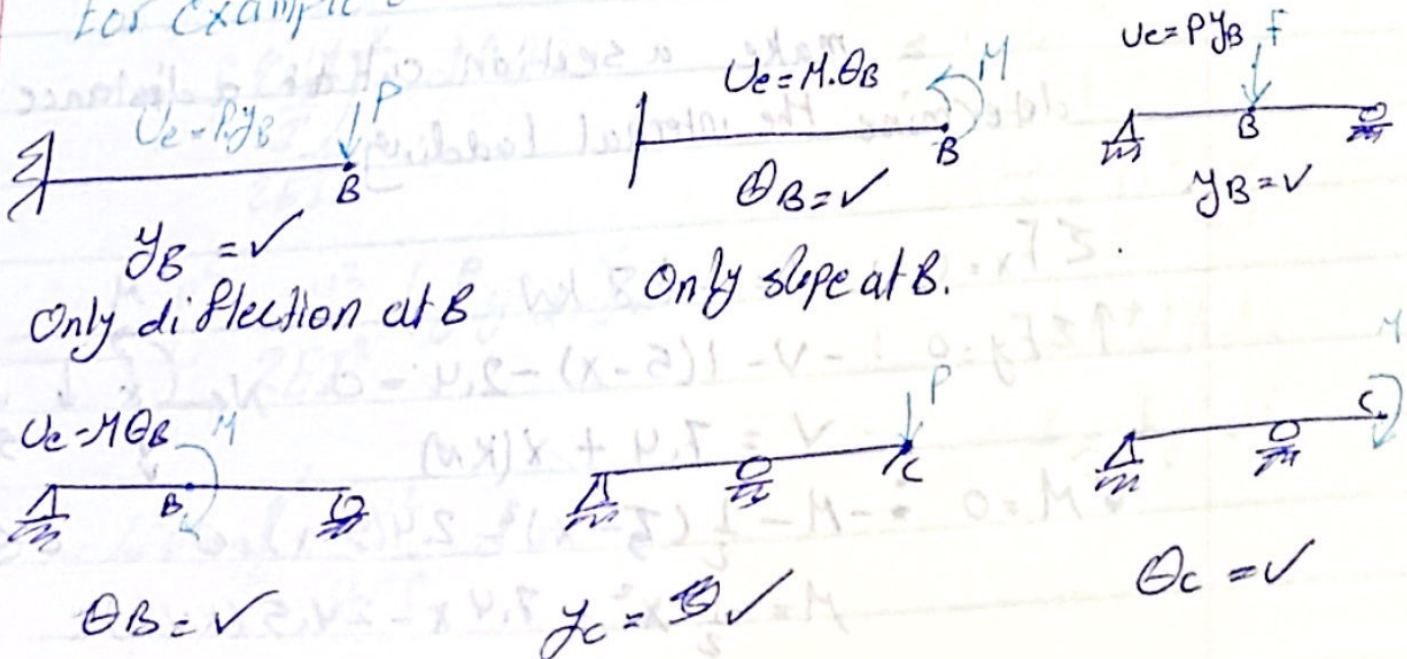 For Example
Ue = P.yB P
B
yB = ✓
Only diflection at B
Ue = M.θB M
B
θB = ✓
Only slope at B.
Ue = PyB F
B
yB = ✓
Ue = MθB M
B
θB = ✓
P
C
yc = ✓
M
C
θc = ✓